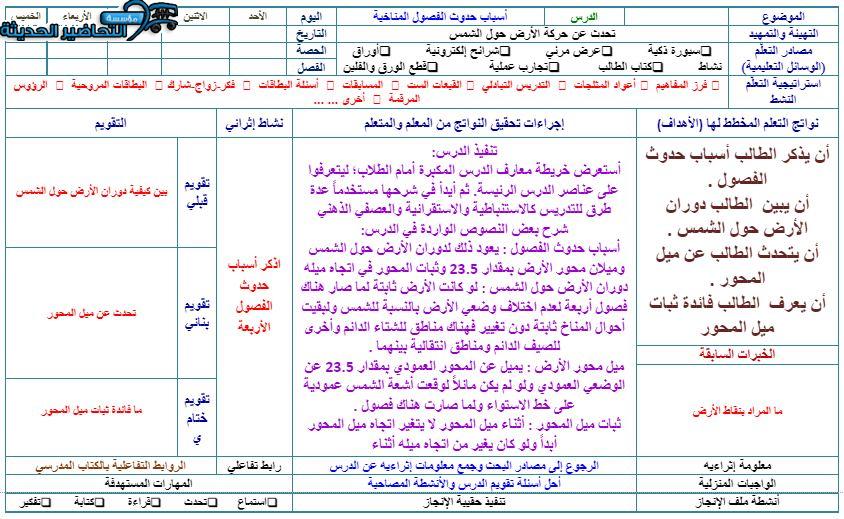 الموضوع
الدرس
أسباب حدوث الفصول المناخية
اليوم
الأحد
الاثنين
الأربعاء
الخميس
مؤسسة
التحاضير الحديثة
التهيئة والتمهيد
تحدث عن حركة الأرض حول الشمس
التاريخ
مصادر التعلّم
(الوسائل التعليمية)
❑سبورة ذكية ❑عرض مرئي ❑شرائح إلكترونية ❑أوراق
نشاط ❑كتاب الطالب ❑تجارب عملية ❑قطع الورق والفلين
الحصة
الفصل
استراتيجية التعلّم
النشط
▯ فرز المفاهيم ▯ أعواد المثلجات ▯ التدريس التبادلي ▯ القبعات الست ▯ المسابقات ▯ أسئلة البطاقات ▯ فكر-زواج-شارك ▯ البطاقات المروحية ▯ الرؤوس
المرقمة ▯ أخرى ... ...
نواتج التعلم المخطط لها (الأهداف)
إجراءات تحقيق النواتج من المعلم والمتعلم
نشاط إثرائي
التقويم
أن يذكر الطالب أسباب حدوث
الفصول .
أن يبين الطالب دوران
الأرض حول الشمس .
أن يتحدث الطالب عن ميل
المحور .
أن يعرف الطالب فائدة ثبات
ميل المحور
الخبرات السابقة
ما المراد بنقاط الأرض
تنفيذ الدرس:
أستعرض خريطة معارف الدرس المكبرة أمام الطلاب؛ ليتعرفوا
على عناصر الدرس الرئيسة. ثم أبدأ في شرحها مستخدماً عدة
طرق للتدريس كالاستنباطية والاستقرائية والعصفي الذهني
شرح بعض النصوص الواردة في الدرس:
أسباب حدوث الفصول : يعود ذلك لدوران الأرض حول الشمس
وميلان محور الأرض بمقدار 23.5 وثبات المحور في اتجاه ميله
دوران الأرض حول الشمس : لو كانت الأرض ثابتة لما صار هناك
فصول أربعة لعدم اختلاف وضعي الأرض بالنسبة للشمس ولبقيت
أحوال المناخ ثابتة دون تغيير فهناك مناطق للشتاء الدائم وأخرى
للصيف الدائم ومناطق انتقالية بينهما .
ميل محور الأرض : يميل عن المحور العمودي بمقدار 23.5 عن
الوضعي العمودي ولو لم يكن مائلاً لوقعت أشعة الشمس عمودية
على خط الاستواء ولما صارت هناك فصول .
ثبات ميل المحور : أثناء ميل المحور لا يتغير اتجاه ميل المحور
أبداً ولو كان يغير من اتجاه ميله أثناء
اذكر أسباب
حدوث
الفصول
الأربعة
تقويم
قبلي
بين كيفية دوران الأرض حول الشمس
تقويم
بنائي
تحدث عن ميل المحور
تقويم
ختام
ي
ما فائدة ثبات ميل المحور
معلومة إثرائيه
الرجوع إلى مصادر البحث وجمع معلومات إثرائيه عن الدرس
رابط تفاعلي
الروابط التفاعلية بالكتاب المدرسي
الواجبات المنزلية
أحل أسئلة تقويم الدرس والأنشطة المصاحبة
المهارات المستهدفة
أنشطة ملف الإنجاز
تنفيذ حقيبة الإنجاز
❑استماع ❑تحدث ❑قراءة ❑كتابة ❑تفكير